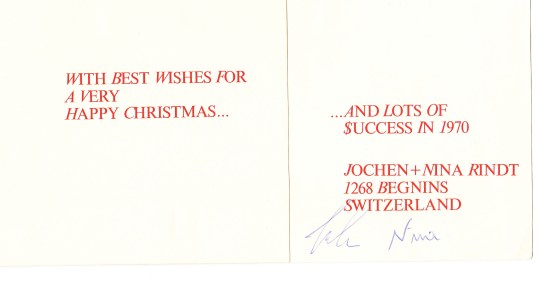 WITH BEST WISHES FOR
A VERY
HAPPY CHRISTMAS...
...AND LOTS OF
SUCCESS IN 1970
JOCHEN+NINA RINDT
1268 BEGNINS
SWITZERLAND
Nina